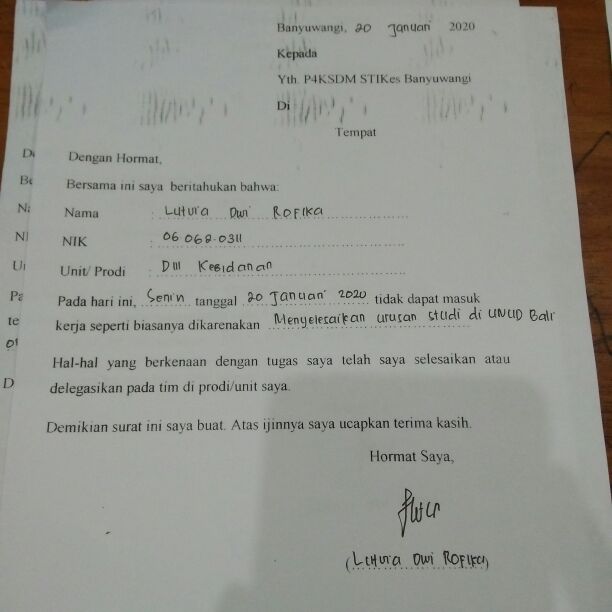 Banyuwangi, 20 Januari 2020
Kepada
Yth. P4KSDM STIKes Banyuwangi
Di
Tempat
Dengan Hormat,
Bersama ini saya beritahukan bahwa:
Nama : Lutvia Dwi ROFIKA
NIK : 06.068.0311
Unit/ Prodi : DIII Kebidanan
Pada hari ini, Senin tanggal 20 Januari 2020 tidak dapat masuk
kerja seperti biasanya dikarenakan Menyelesaikan urusan studi di UNUD Bali
Hal-hal yang berkenaan dengan tugas saya telah saya selesaikan atau
delegasikan pada tim di prodi/unit saya.
Demikian surat ini saya buat. Atas ijinnya saya ucapkan terima kasih.
Hormat Saya,
(Lutvia Dwi ROFIKA)